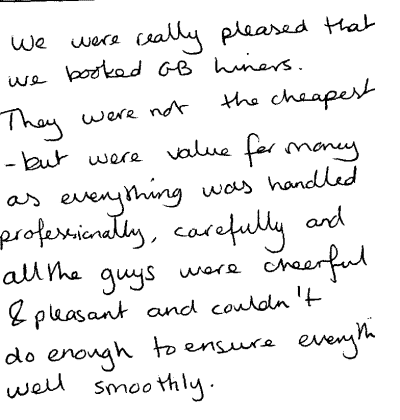 We were really pleased that
we booked GB Liners.
They were not the cheapest
- but were value for money
as everything was handled
professionally, carefully and
all the guys were cheerful
& pleasant and couldn't
do enough to ensure everyth
well smoothly.